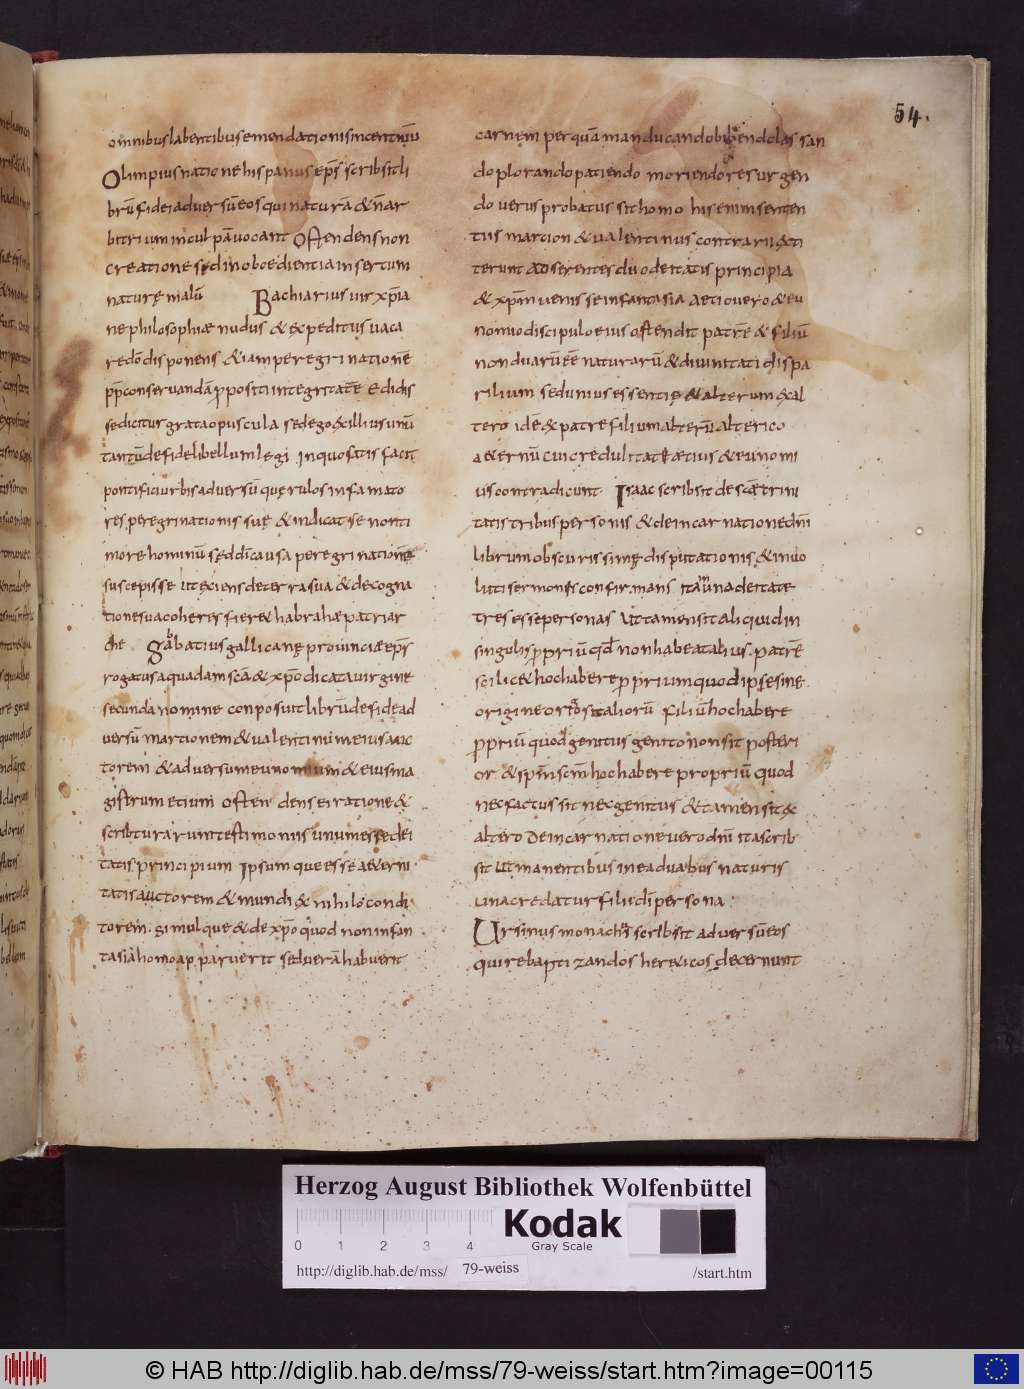 54.
omnibus labentibus emendationis incentiuũ
Olimpius natione hispanus ep̃s scribsit li
brũ fidei aduersũ eos qui naturã & ñ ar
bitrium in culpã uocant Ostendens non
creatione sed inoboedientia insertum
naturę malũ Bachiarius uir xp̃ia
ne philosophiæ nudus & expeditus uaca
re dõ disponens & iam peregrinatione
pp̃ conseruandã ppositi integritatẽ edidis
se dicitur grata opuscula sed ego ex illius unũ
tantũ de fide libellum legi In quo satis facit
pontifici urbis aduersũ querulos infamato
res peregrinationis suę & indicat se non ti
more hominũ sed dĩ causa peregrinationẽ
suscepisse ut exiens de terra sua & de cogna
tione sua coheris fier& habrahæ patriar
che Sabbatius gallicanę prouinciæ ep̃s
rogatus a quadam scã & xp̃o dicata uirgine
secunda nomine conposuit librũ de fide ad
uersũ martionem & ualentinũ m eius auc
torem & aduersum eunomium & eius ma
gistrum etium Ostendens & ratione &
scribturarum testimoniis unum esse dei
tatis principium Ipsum que esse aeterni
tatis auctorem & mundi & nihilo condi
torem. Simul que & de xp̃o quod non in fan
tasia homo apparuerit sed uerã habuerit
carnem per quã manducando bibendo las san
do plorando patiendo moriendo resurgen
do uerus probatus sit homo his enim senten
tiis martion & ualentinus contrarii exti
terunt Adserentes duo deitatis principia
& xp̃m uenisse in fantasia Aetio uero & eu
nomio discipulo eius ostendit patrẽ & filiũ
non duarũ eẽ naturarũ & diuinitati dispa
rilium sed unius essentię & alterum ex al
tero idẽ ex patre filium alterũ alteri co
aeternũ cui credulitati ætius & eunomi
us contradicunt Isaac scribsit de scæ trini
tatis tribus personis & de incarnatione dñi
librum obscurissimę disputationis & inuo
luti sermonis confirmans ita in una deitate
tres esse personas Ut tamen sit aliquid in
singulis ppriũ qd non habeat alius. patrẽ
scilicet hoc habere pprium quod ipse sine
origine origo sit aliorũ filiũ hoc habere
ppriũ quod genitus genito non sit posteri
or & spm̃ scm̃ hoc habere propriũ quod
nec factus sit nec genitus & tamen sit ex
altero De incarnatione uero dñi ita scrib
sit Ut manentibus in ea duabus naturis
una credatur filii dĩ persona.
Ursinus monachus scribsit aduersũ eos
qui rebaptizandos hereticos decernunt
Herzog August Bibliothek Wolfenbüttel
Kodak
Gray Scale
0 1 2 3 4
http://diglib.hab.de/mss/ 79-weiss /start.htm
© HAB http://diglib.hab.de/mss/79-weiss/start.htm?image=00115